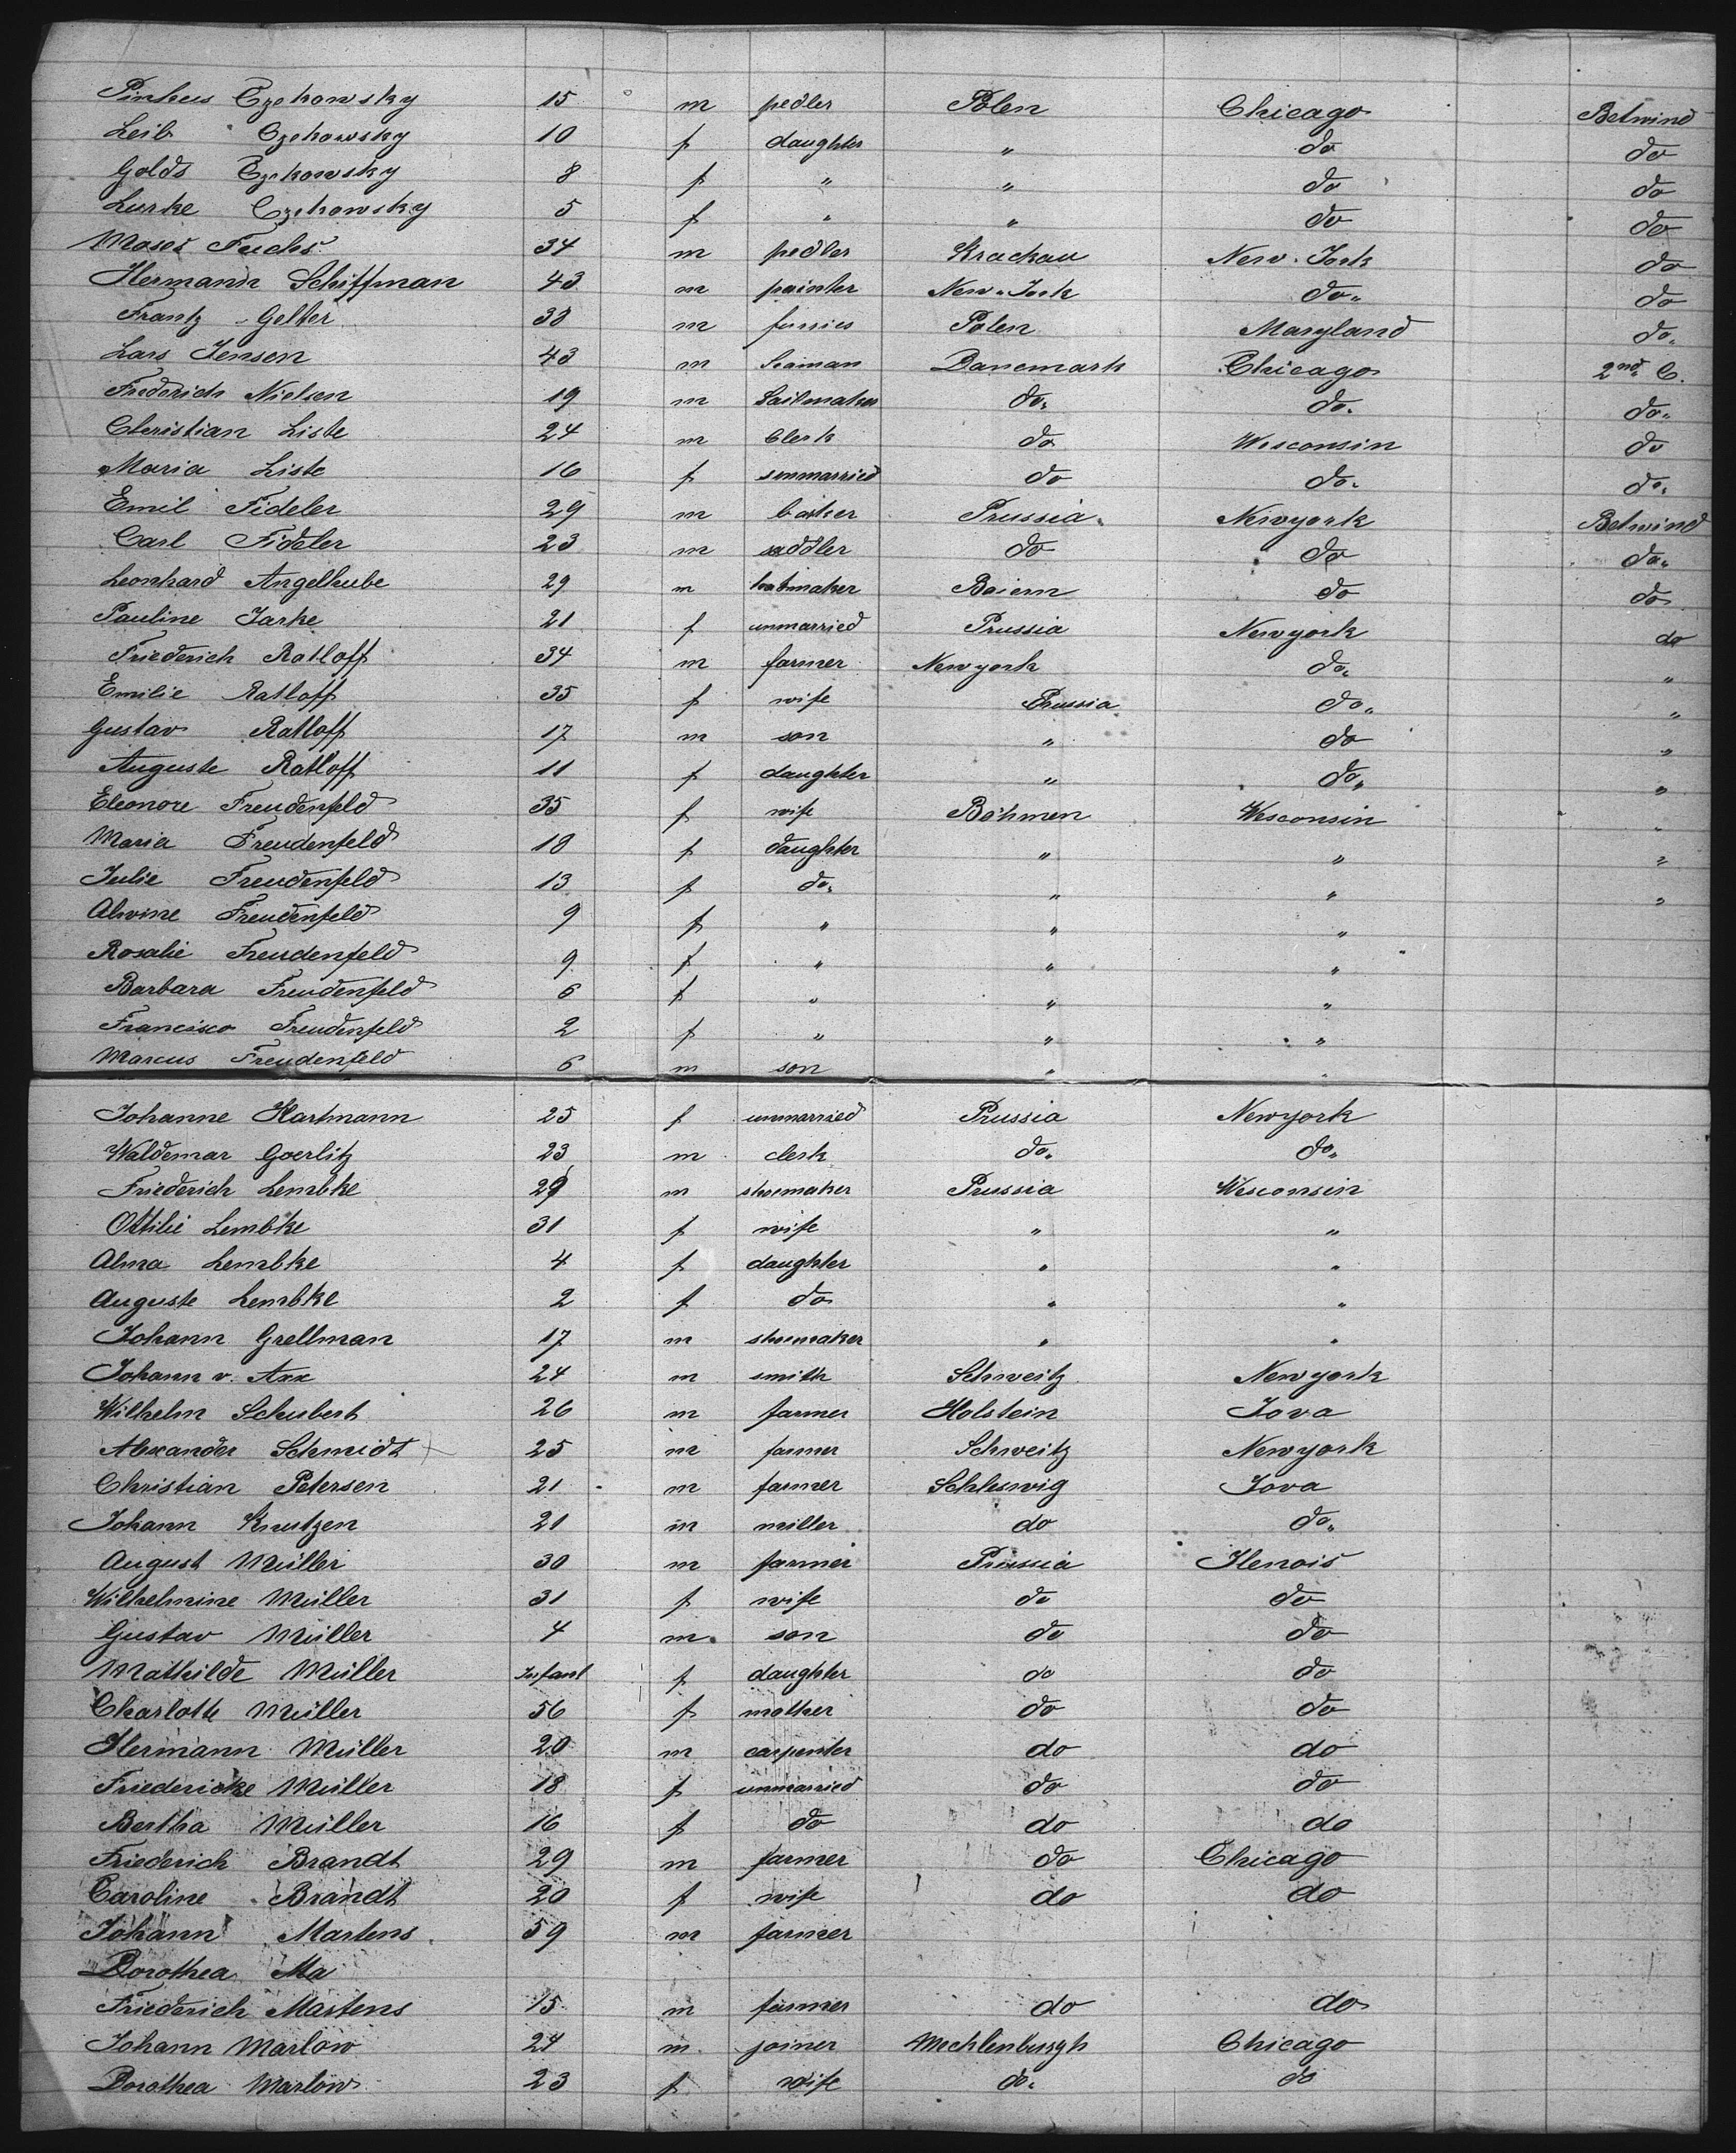 Pinkus Czekowsky 15 m pedler Polen Chicago Betwind
Leib Czekowsky 10 f daughter " do do
Golds Czekowsky 8 f " " do do
Lurke Czekowsky 5 f " " do do
Moses Fuchs 34 m pedler Krackau New-York do
Hermann Schiffman 43 m painter New-York do. do
Frantz Gelter 38 m Polen Maryland do.
Lars Jensen 43 m Seaman Danemark Chicago 2nd C.
Frederich Nielsen 19 m Sailmaker do. do. do.
Christian Liste 24 m Clerk do Wesconsin do
Maria Liste 16 f unmarried do do. do.
Emil Fideler 29 m baker Prussia Newyork Betwind
Carl Fideler 23 m saddler do do do.
Leonhard Angelhube 29 m hatmaker Baiern do do
Pauline Jarke 21 f unmarried Prussia Newyork do
Friederich Ratloff 34 m farmer Newyork do. "
Emilie Ratloff 35 f wife Prussia do. "
Gustav Ratloff 17 m son " do "
Auguste Ratloff 11 f daughter " do. "
Eleonore Freudenfeld 35 f wife Böhmen Wesconsin "
Maria Freudenfeld 18 f daughter " " "
Julie Freudenfeld 13 f do. " " "
Alwine Freudenfeld 9 f " " "
Rosalie Freudenfeld 9 f " " "
Barbara Freudenfeld 6 f " " "
Francisco Freudenfeld 2 f " " "
Marcus Freudenfeld 6 m son " "
Johanne Hartmann 25 f unmarried Prussia Newyork
Waldemar Goerlitz 23 m clerk do. do.
Friederich Lembke 29 m shoemaker Prussia Wesconsin
Ottilie Lembke 31 f wife " "
Alma Lembke 4 f daughter " "
Auguste Lembke 2 f do " "
Johann Grellman 17 m shoemaker " "
Johann v. Arx 24 m smith Schweitz Newyork
Wilhelm Schubert 26 m farmer Holstein Jova
Alexander Schmidt 25 m farmer Schweitz Newyork
Christian Petersen 21 m farmer Schleswig Jova
Johann Knutzen 21 m miller do do.
August Müller 30 m farmer Prussia Ilenois
Wilhelmine Müller 31 f wife do do
Gustav Müller 4 m son do do
Mathilde Müller Infant f daughter do do
Charlotte Müller 56 f mother do do
Hermann Müller 20 m carpenter do do
Friedericke Müller 18 f unmarried do do
Bertha Müller 16 f do do do
Friederich Brandt 29 m farmer do Chicago
Caroline Brandt 20 f wife do do
Johann Martens 59 m farmer
Dorothea Ma
Friederich Martens 15 m farmer do do
Johann Marlow 24 m joiner Mechlenburgh Chicago
Dorothea Marlow 23 f wife do. do